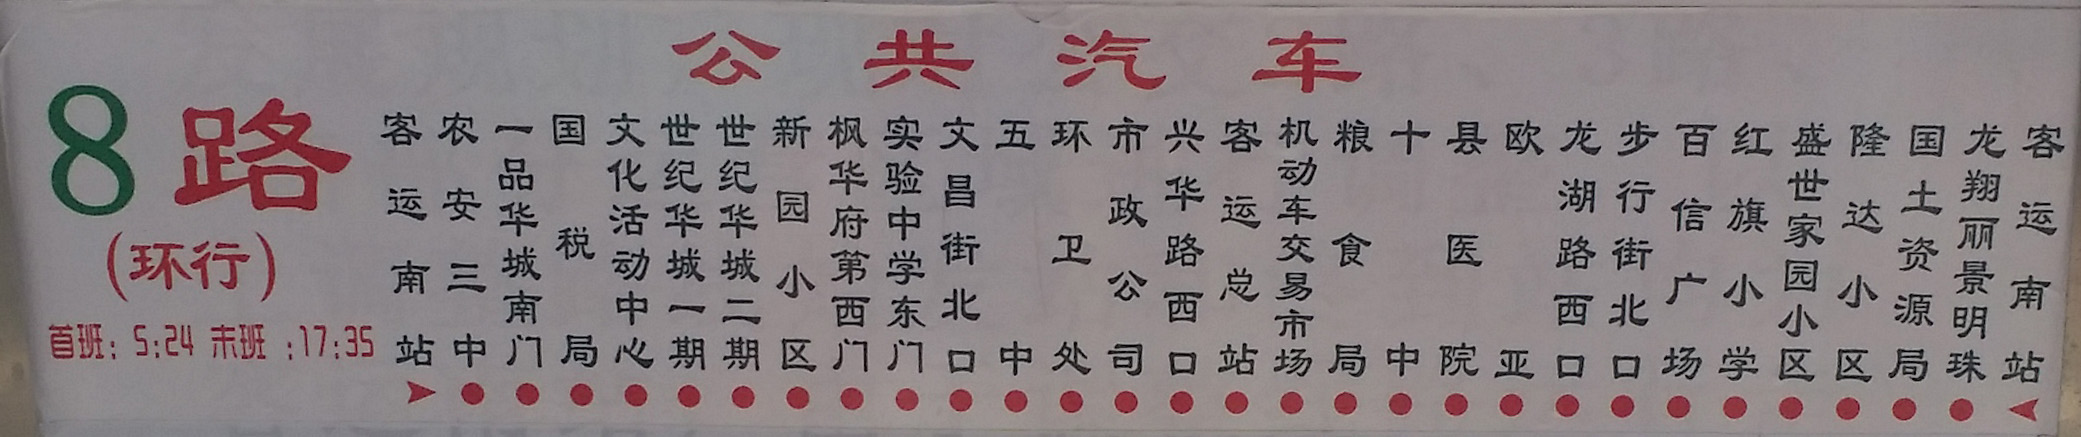 公共汽车
8路
(环行)
首班：5:24 末班：17:35
客运南站
农安三中
一品华城南门
国税局
文化活动中心
世纪华城一期
世纪华城二期
新园小区
枫华府第西门
实验中学东门
文昌街北口
五中
环卫处
市政公司
兴华路西口
客运总站
机动车交易市场
粮食局
十中
县医院
欧亚
龙湖路西口
步行街北口
百信广场
红旗小学
盛世家园小区
隆达小区
国土资源局
龙翔丽景明珠
客运南站